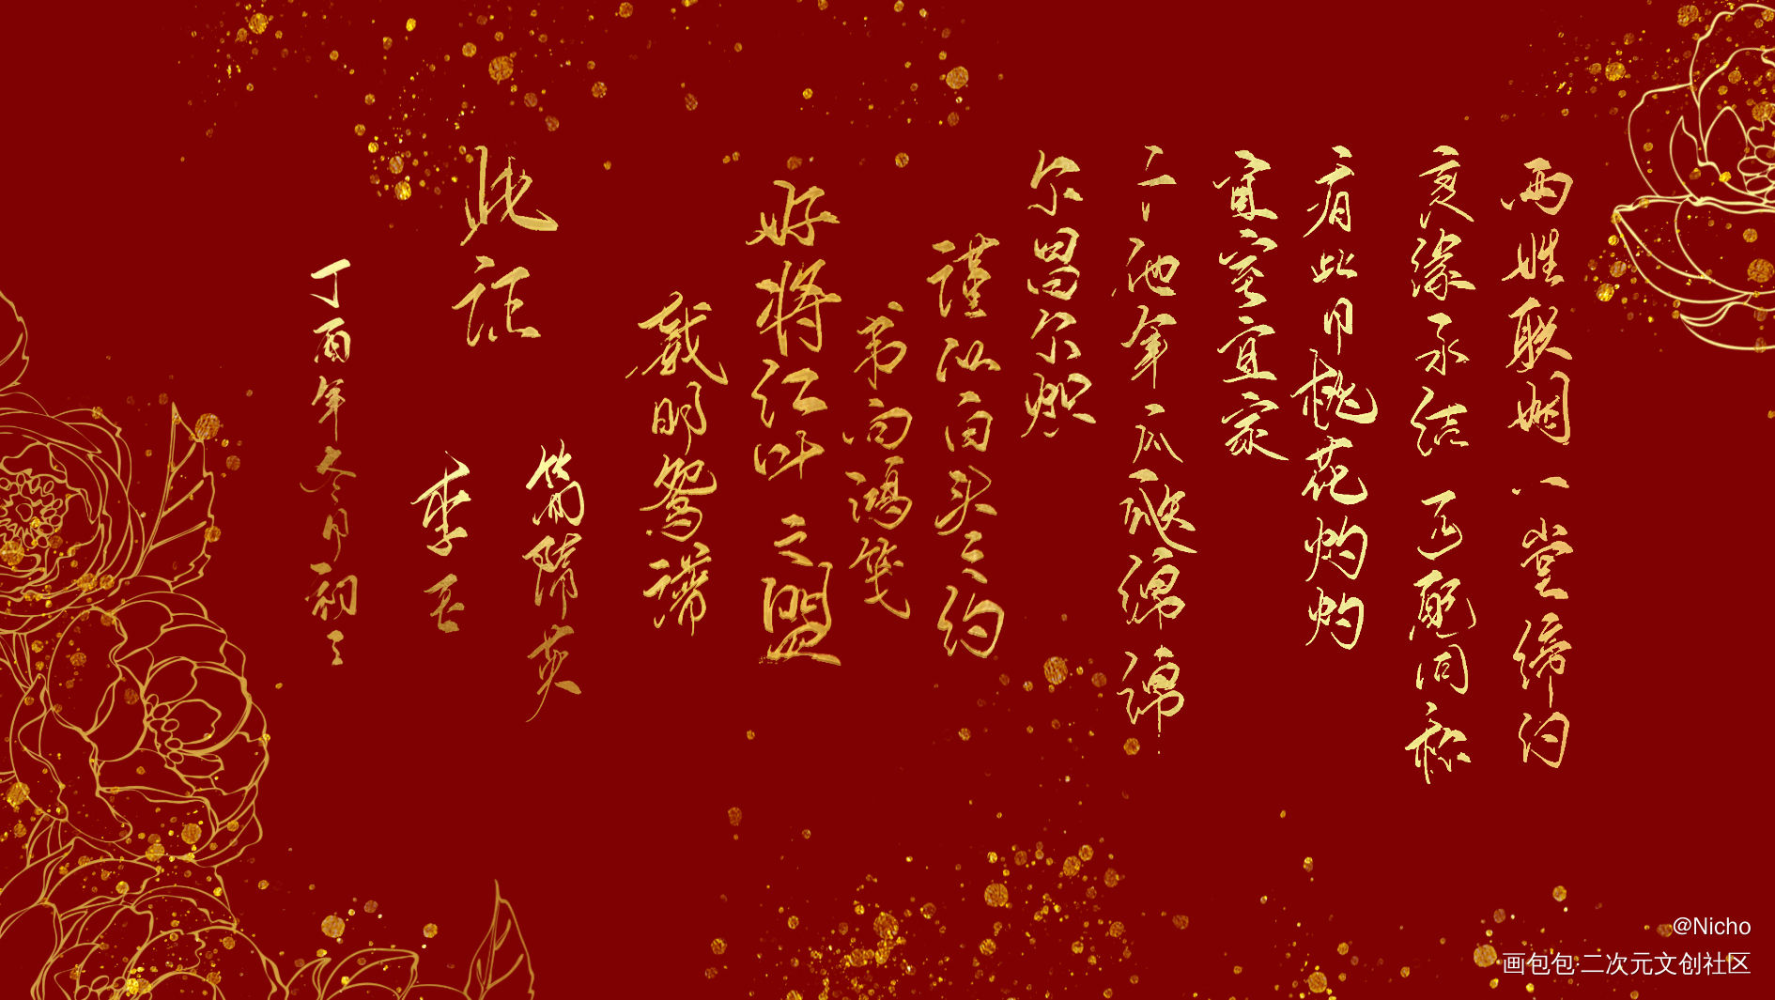 两姓联姻 一堂缔约
良缘永结 匹配同称
看此日桃花灼灼
宜室宜家
卜他年瓜瓞绵绵
尔昌尔炽
谨以白头之约
书向鸿笺
好将红叶之盟
载明鸳谱
此证
简隋英
李玉
丁酉年冬月初三
@Nicho
画包包·二次元文创社区